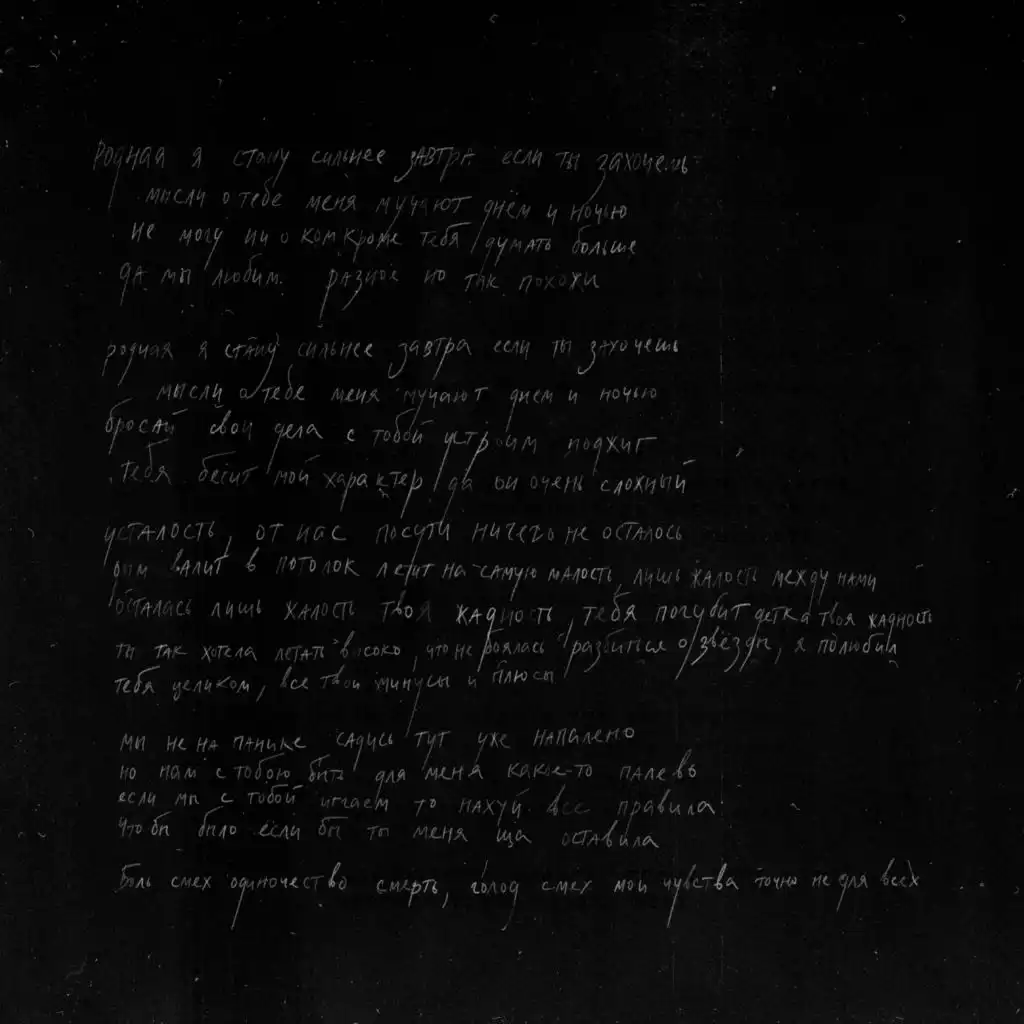 Родная я стану сильнее завтра если ты захочешь
мысли о тебе меня мучают днём и ночью
не могу ни о ком кроме тебя думать больше
да мы любим разное но так похожи
родная я стану сильнее завтра если ты захочешь
мысли о тебе меня мучают днем и ночью
бросай свои дела с тобой устроим поджиг
тебя бесит мой характер да он очень сложный
усталость, от нас посути ничего не осталось
дым валит в потолок летит на самую малость, лишь жалость между нами
осталась лишь жалость твоя жадность, тебя погубит детка твоя жадность
ты так хотела летать высоко, что не боялась разбиться о звёзды, я полюбил
тебя целиком, все твои минусы и плюсы
мы не на панике садись тут уже напалено
но нам с тобою быть для меня какое-то палево
если мы с тобой играем то нахуй все правила
что бы было если бы ты меня ща оставила
боль смех одиночество смерть, голод смех мои чувства точно не для всех